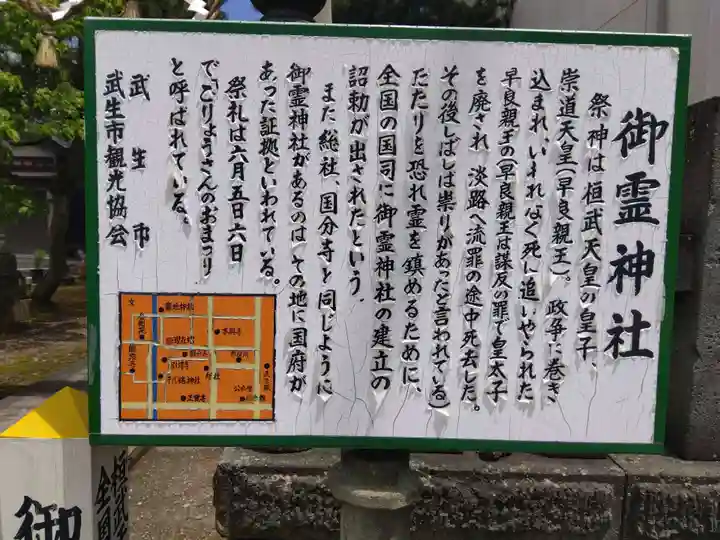 御霊神社
祭神は、桓武天皇の皇子、
崇道天皇(早良親王)。政争に巻き
込まれ、いわれなく死に追いやられた
早良親王の(早良親王は謀反の罪で皇太子
を廃され、淡路へ流罪の途中死去した。
その後しばしば祟りがあったと言われている)
たたりを恐れ霊を鎮めるために、
全国の国司に御霊神社の建立の
詔勅が出されたという。
また総社、国分寺と同じように
御霊神社があるのは、その地に国府が
あった証拠といわれている。
祭礼は六月五日六日
で「ごりょうさんのおまつり
と呼ばれている。
武生市
武生市観光協会
文
本興寺
国分寺
総社
公会堂
正覚寺
御
桓武天
全国